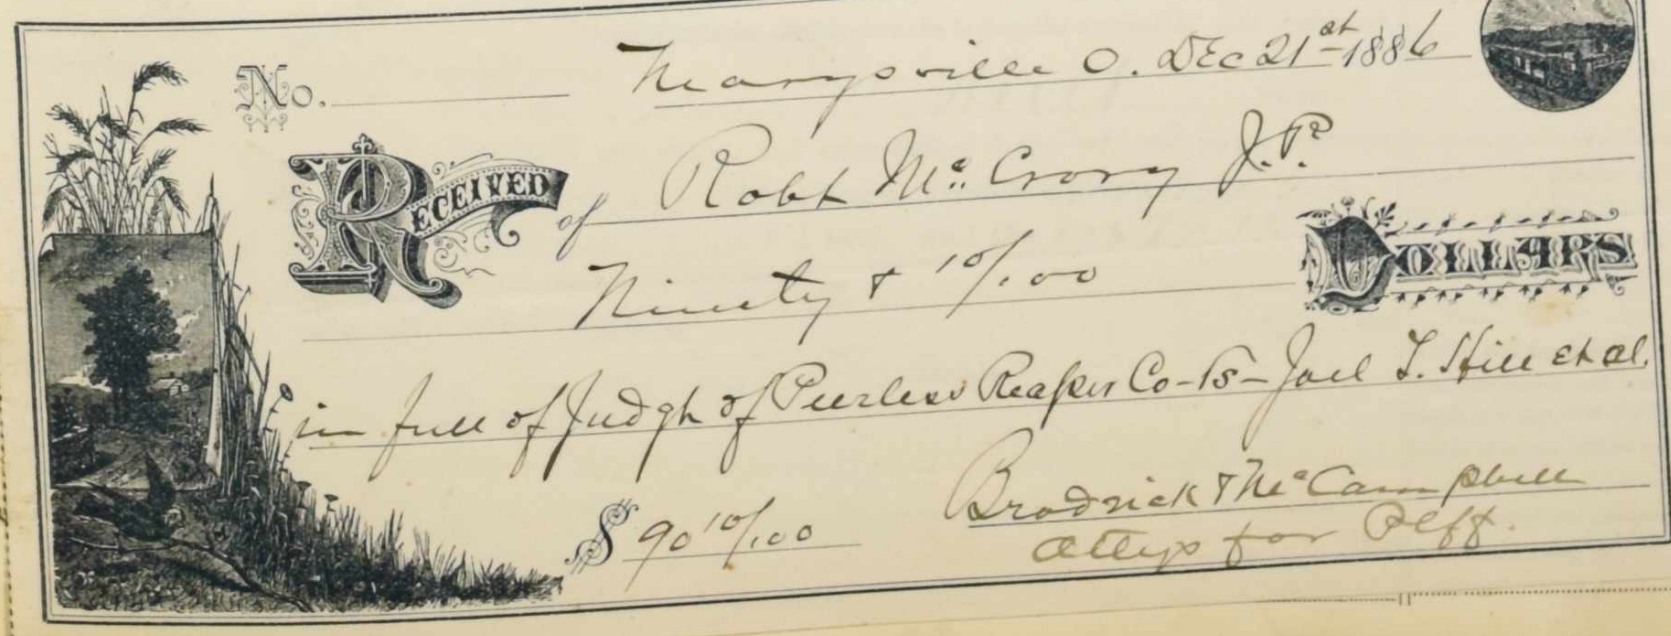 No. Marysville O. Dec 21st 1886
Received of Robt McCrory J.P.
Ninety & 10/100 Dollars
in full of Judgt of Peerless Reaper Co - vs - Joel T. Hill et al.
$ 90 10/100 Brodrick & McCampbell
Attys for Plff.